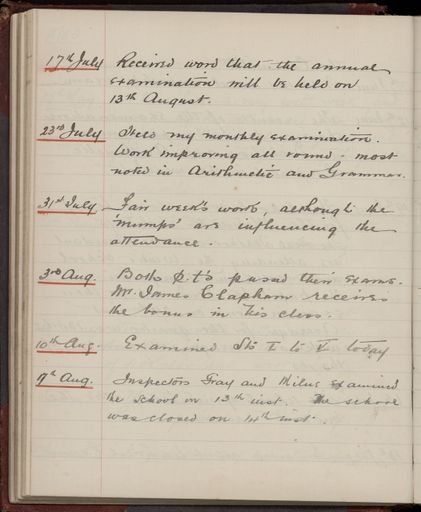 17th July Received word that the annual
examination will be held on
13th August.
23rd July Held my monthly examination.
Work improving all round - most
noted in Arithmetic and Grammar.
31st July Fair week's work, although the
'mumps' are influencing the
attendance.
3rd Aug. Both P.t's passed their exams.
Mr. James Clapham receives
the bonus in his class.
10th Aug. Examined Sts I to V today
17th Aug. Inspectors Gray and Milne examined
the school on 13th inst. The school
was closed on 14th inst.